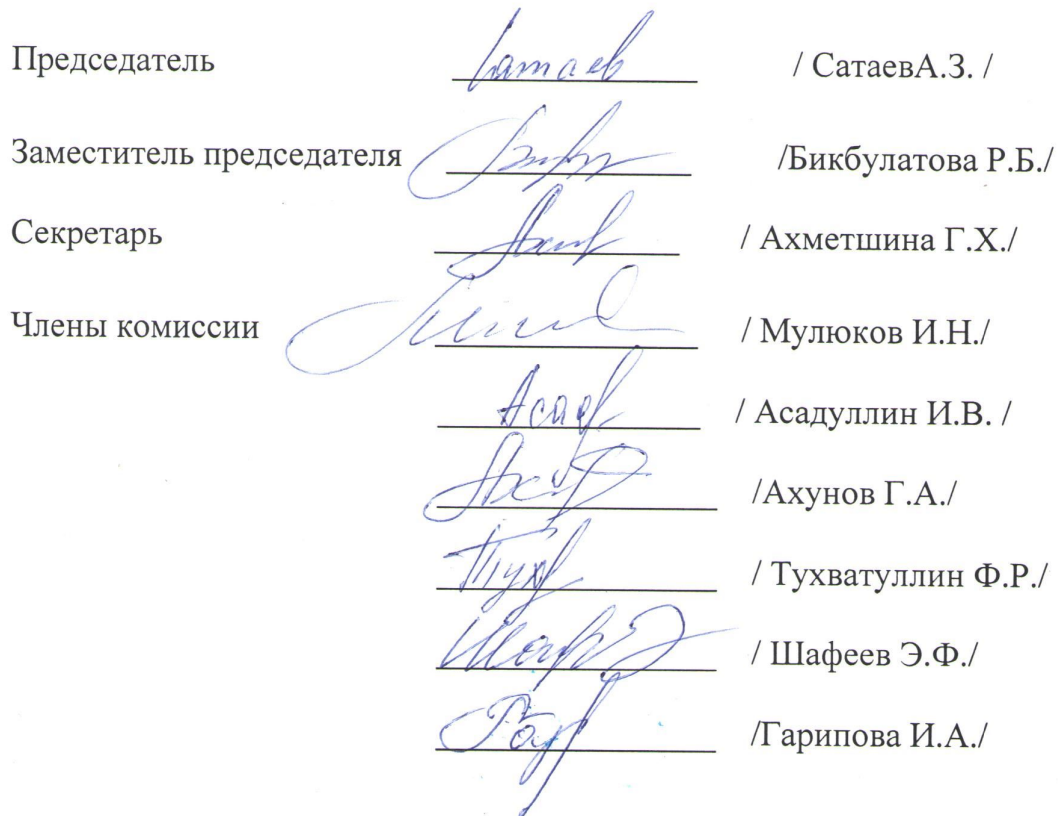 Председатель Сатаев / СатаевА.З. /
Заместитель председателя /Бикбулатова Р.Б./
Секретарь / Ахметшина Г.Х./
Члены комиссии / Мулюков И.Н./
/ Асадуллин И.В. /
/Ахунов Г.А./
/ Тухватуллин Ф.Р./
/ Шафеев Э.Ф./
/Гарипова И.А./